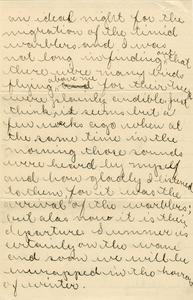 an ideal night for the
migration of the timid
warblers, and I was
not long in finding out that
there were many birds
flying above me for their
were plainly audible, just
think it seems but a
few weeks ago when at
the same time in the
morning those sounds
were heard by myself
and how gladly I listened
to them for it was the
arrival of the warblers;
but alas now it is their
departure. Summer is
certainly on the wane
and soon we will be
enwrapped in the horrors
of winter.